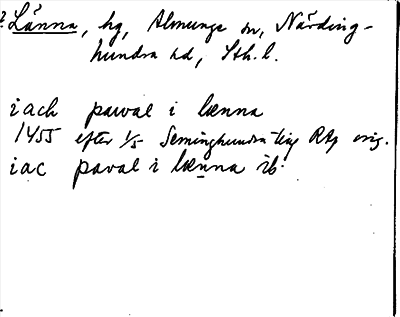 ? Länna, hg, Almunge sn, Närding-
hundra hd, Sth.l.
iach pawal i lænna
1455 efter 1/5 Seminghundra ting RAp orig.
iac paval i lænna ib.